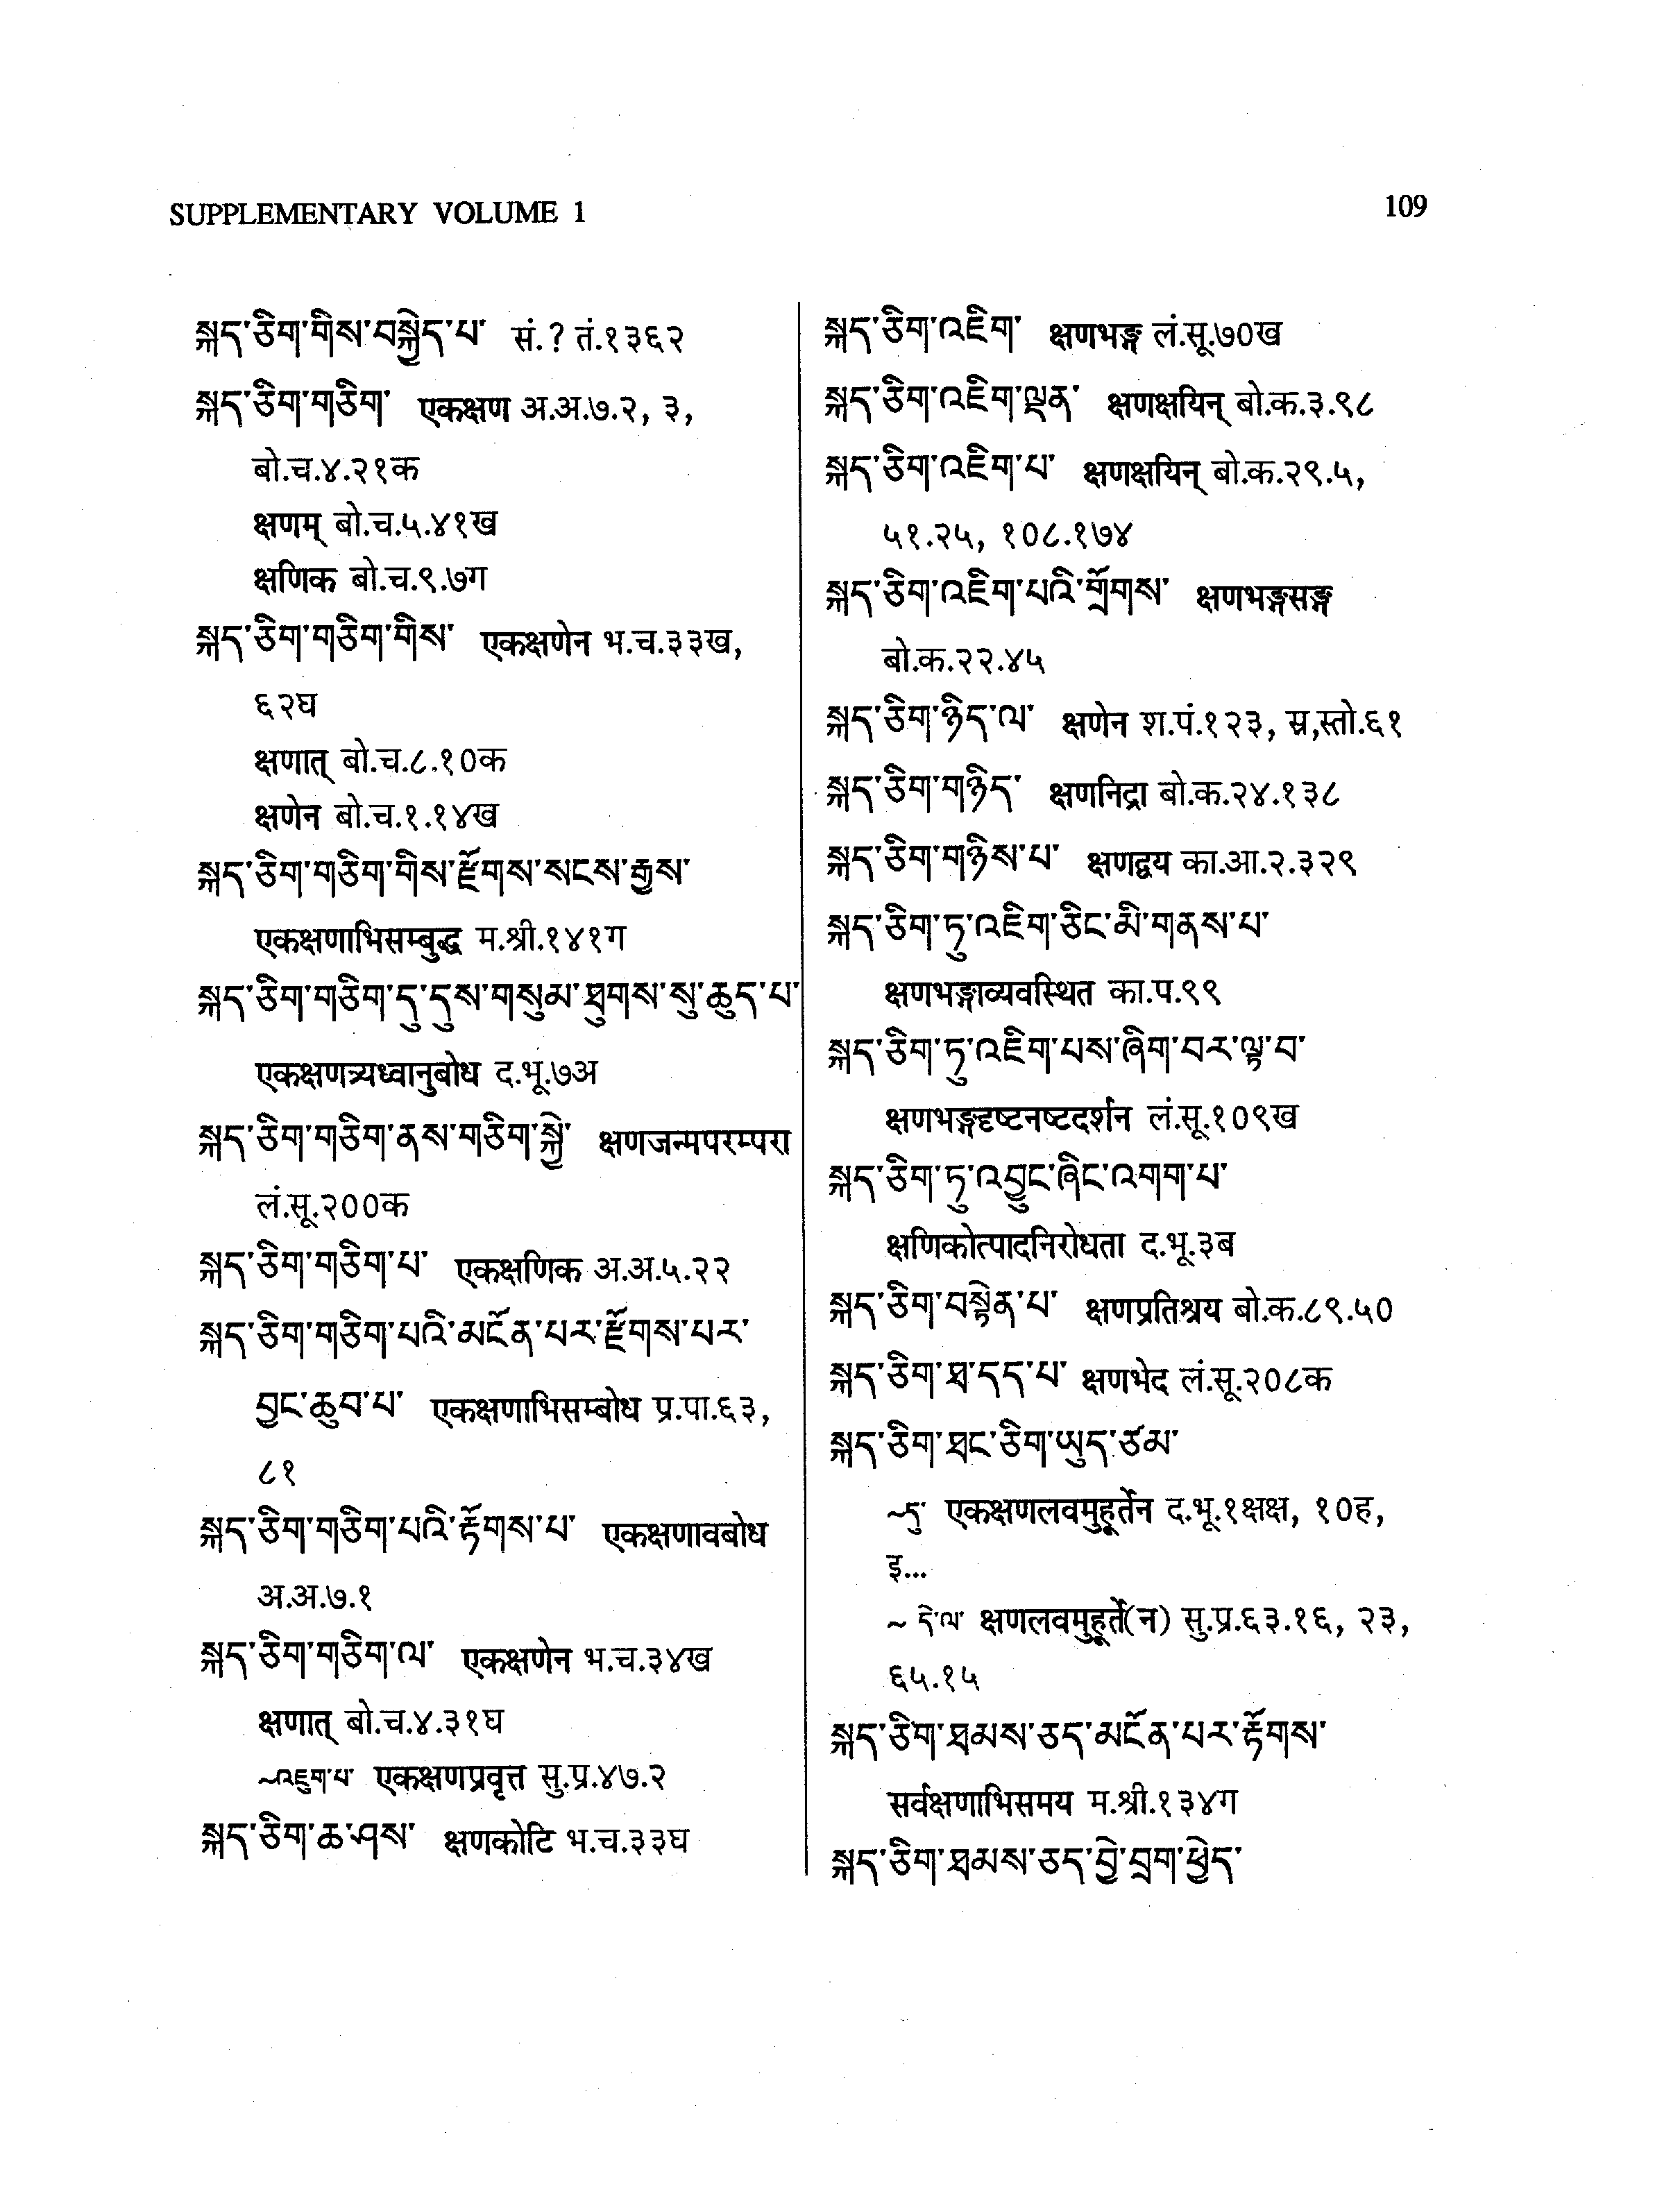 SUPPLEMENTARY VOLUME 1
109
སྐད་ཅིག་གིས་བསྐྱེད་པ་ सं.? तं.१३६२
སྐད་ཅིག་གཅིག་ एकक्षण अ.अ.७.२, ३,
बो.च.४.२१क
क्षणम् बो.च.५.४१ख
क्षणिक बो.च.९.७ग
སྐད་ཅིག་གཅིག་གིས་ एकक्षणेन भ.च.३३ख,
६२घ
क्षणात् बो.च.८.१०क
क्षणेन बो.च.१.१४ख
སྐད་ཅིག་གཅིག་གིས་རྫོགས་སངས་རྒྱས་
एकक्षणाभिसम्बुद्ध म.श्री.१४१ग
སྐད་ཅིག་གཅིག་དུ་དུས་གསུམ་ཐུགས་སུ་ཆུད་པ་
एकक्षणत्र्यध्वानुबोध द.भू.७अ
སྐད་ཅིག་གཅིག་ནས་གཅིག་སྐྱེ་ क्षणजन्मपरम्परा
लं.सू.२००क
སྐད་ཅིག་གཅིག་པ་ एकक्षणिक अ.अ.५.२२
སྐད་ཅིག་གཅིག་པའི་མངོན་པར་རྫོགས་པར་
བྱང་ཆུབ་པ་ एकक्षणाभिसम्बोध प्र.पा.६३,
८१
སྐད་ཅིག་གཅིག་པའི་རྟོགས་པ་ एकक्षणावबोध
अ.अ.७.१
སྐད་ཅིག་གཅིག་ལ་ एकक्षणेन भ.च.३४ख
क्षणात् बो.च.४.३१घ
~འཇུག་པ་ एकक्षणप्रवृत्त सु.प्र.४७.२
སྐད་ཅིག་ཆ་ཤས་ क्षणकोटि भ.च.३३घ
སྐད་ཅིག་འཇིག་ क्षणभङ्ग लं.सू.७०ख
སྐད་ཅིག་འཇིག་ལྡན་ क्षणक्षयिन् बो.क.३.९८
སྐད་ཅིག་འཇིག་པ་ क्षणक्षयिन् बो.क.२९.५,
५१.२५, १०८.१७४
སྐད་ཅིག་འཇིག་པའི་གྲོགས་ क्षणभङ्गसङ्ग
बो.क.२२.४५
སྐད་ཅིག་ཉིད་ལ་ क्षणेन श.पं.१२३, स्र,स्तो.६१
སྐད་ཅིག་གཉིད་ क्षणनिद्रा बो.क.२४.१३८
སྐད་ཅིག་གཉིས་པ་ क्षणद्वय का.आ.२.३२९
སྐད་ཅིག་ཏུ་འཇིག་ཅིང་མི་གནས་པ་
क्षणभङ्गाव्यवस्थित का.प.९९
སྐད་ཅིག་ཏུ་འཇིག་པས་ཞིག་བར་ལྟ་བ་
क्षणभङ्गदृष्टनष्टदर्शन लं.सू.१०९ख
སྐད་ཅིག་ཏུ་འབྱུང་ཞིང་འགག་པ་
क्षणिकोत्पादनिरोधता द.भू.३ब
སྐད་ཅིག་བསྟེན་པ་ क्षणप्रतिश्रय बो.क.८९.५०
སྐད་ཅིག་ཐ་དད་པ་ क्षणभेद लं.सू.२०८क
སྐད་ཅིག་ཐང་ཅིག་ཡུད་ཙམ་
~དུ་ एकक्षणलवमुहूर्तेन द.भू.१क्षक्ष, १०ह,
इ...
~ དེ་ལ་ क्षणलवमुहूर्ते(न) सु.प्र.६३.१६, २३,
६५.१५
སྐད་ཅིག་ཐམས་ཅད་མངོན་པར་རྟོགས་
सर्वक्षणाभिसमय म.श्री.१३४ग
སྐད་ཅིག་ཐམས་ཅད་བྱེ་བྲག་ཕྱེད་